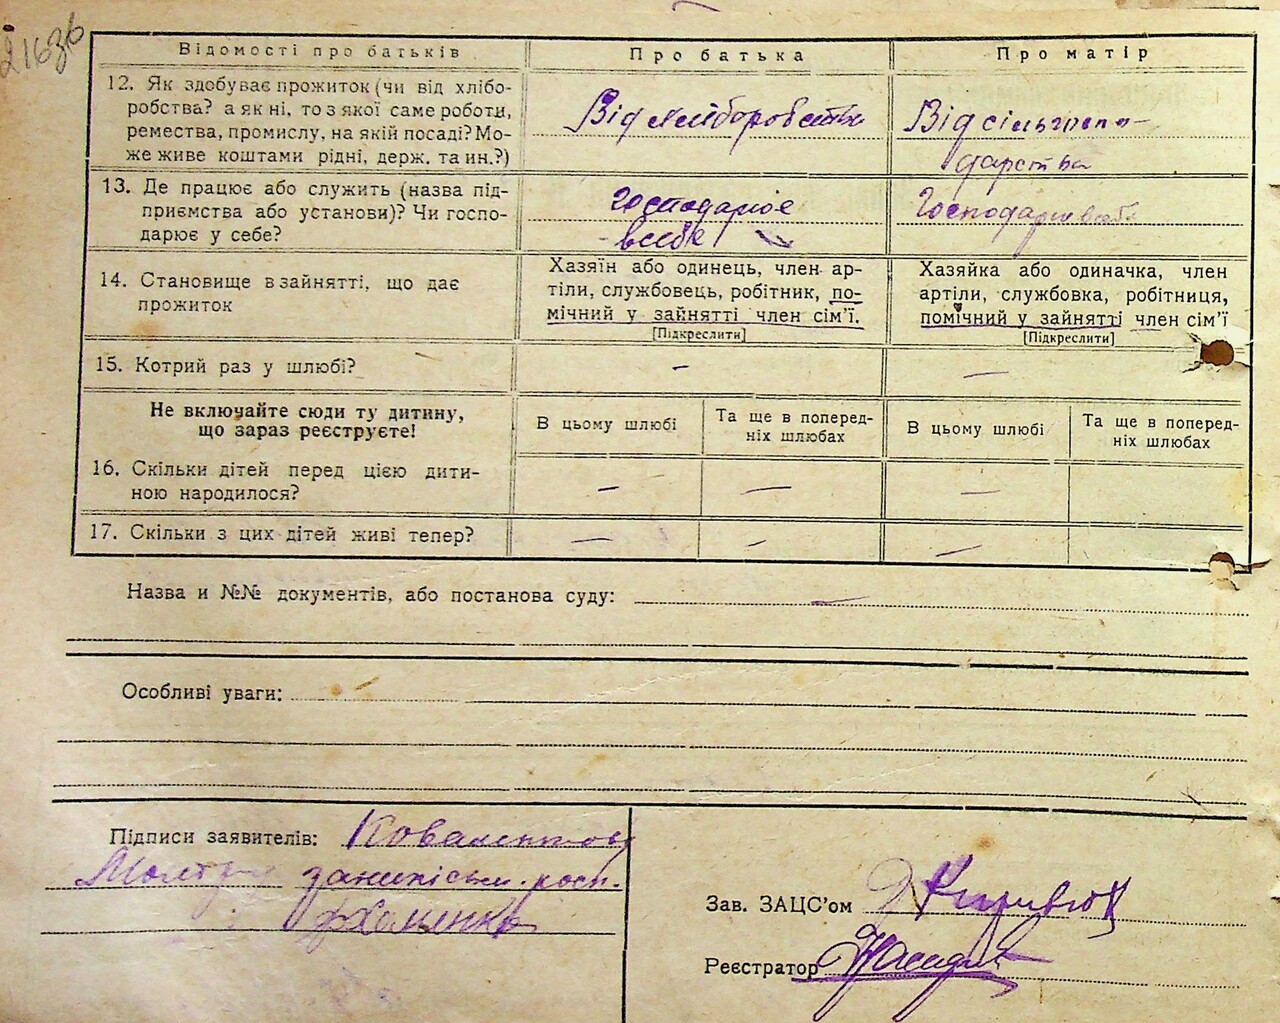 2163б
Відомості про батьків
Про батька
Про матір
12. Як здобуває прожиток (чи від хлібо-
робства? а як ні, то з якої саме роботи,
ремества, промислу, на якій посаді? Мо-
же живе коштами рідні, держ. та ин.?)
Від хліборобства
Від сільгоспо-
дарства
13. Де працює або служить (назва під-
приємства або установи)? Чи госпо-
дарює у себе?
господарює
всебе
Господарює всебе
14. Становище в зайнятті, що дає
прожиток
Хазяїн або одинець, член ар-
тіли, службовець, робітник, по-
мічний у зайнятті член сім'ї.
[Підкреслити]
Хазяйка або одиначка, член
артіли, службовка, робітниця,
помічний у зайнятті член сім'ї
[Підкреслити]
15. Котрий раз у шлюбі?
-
—
Не включайте сюди ту дитину,
що зараз реєструєте!
В цьому шлюбі
Та ще в поперед-
ніх шлюбах
В цьому шлюбі
Та ще в поперед-
ніх шлюбах
16. Скільки дітей перед цією дити-
ною народилося?
— — —
17. Скільки з цих дітей живі тепер?
— — —
Назва и №№ документів, або постанова суду: —
Особливі уваги:
Підписи заявителів:
Хоменко
Зав. ЗАЦС'ом
Реєстратор